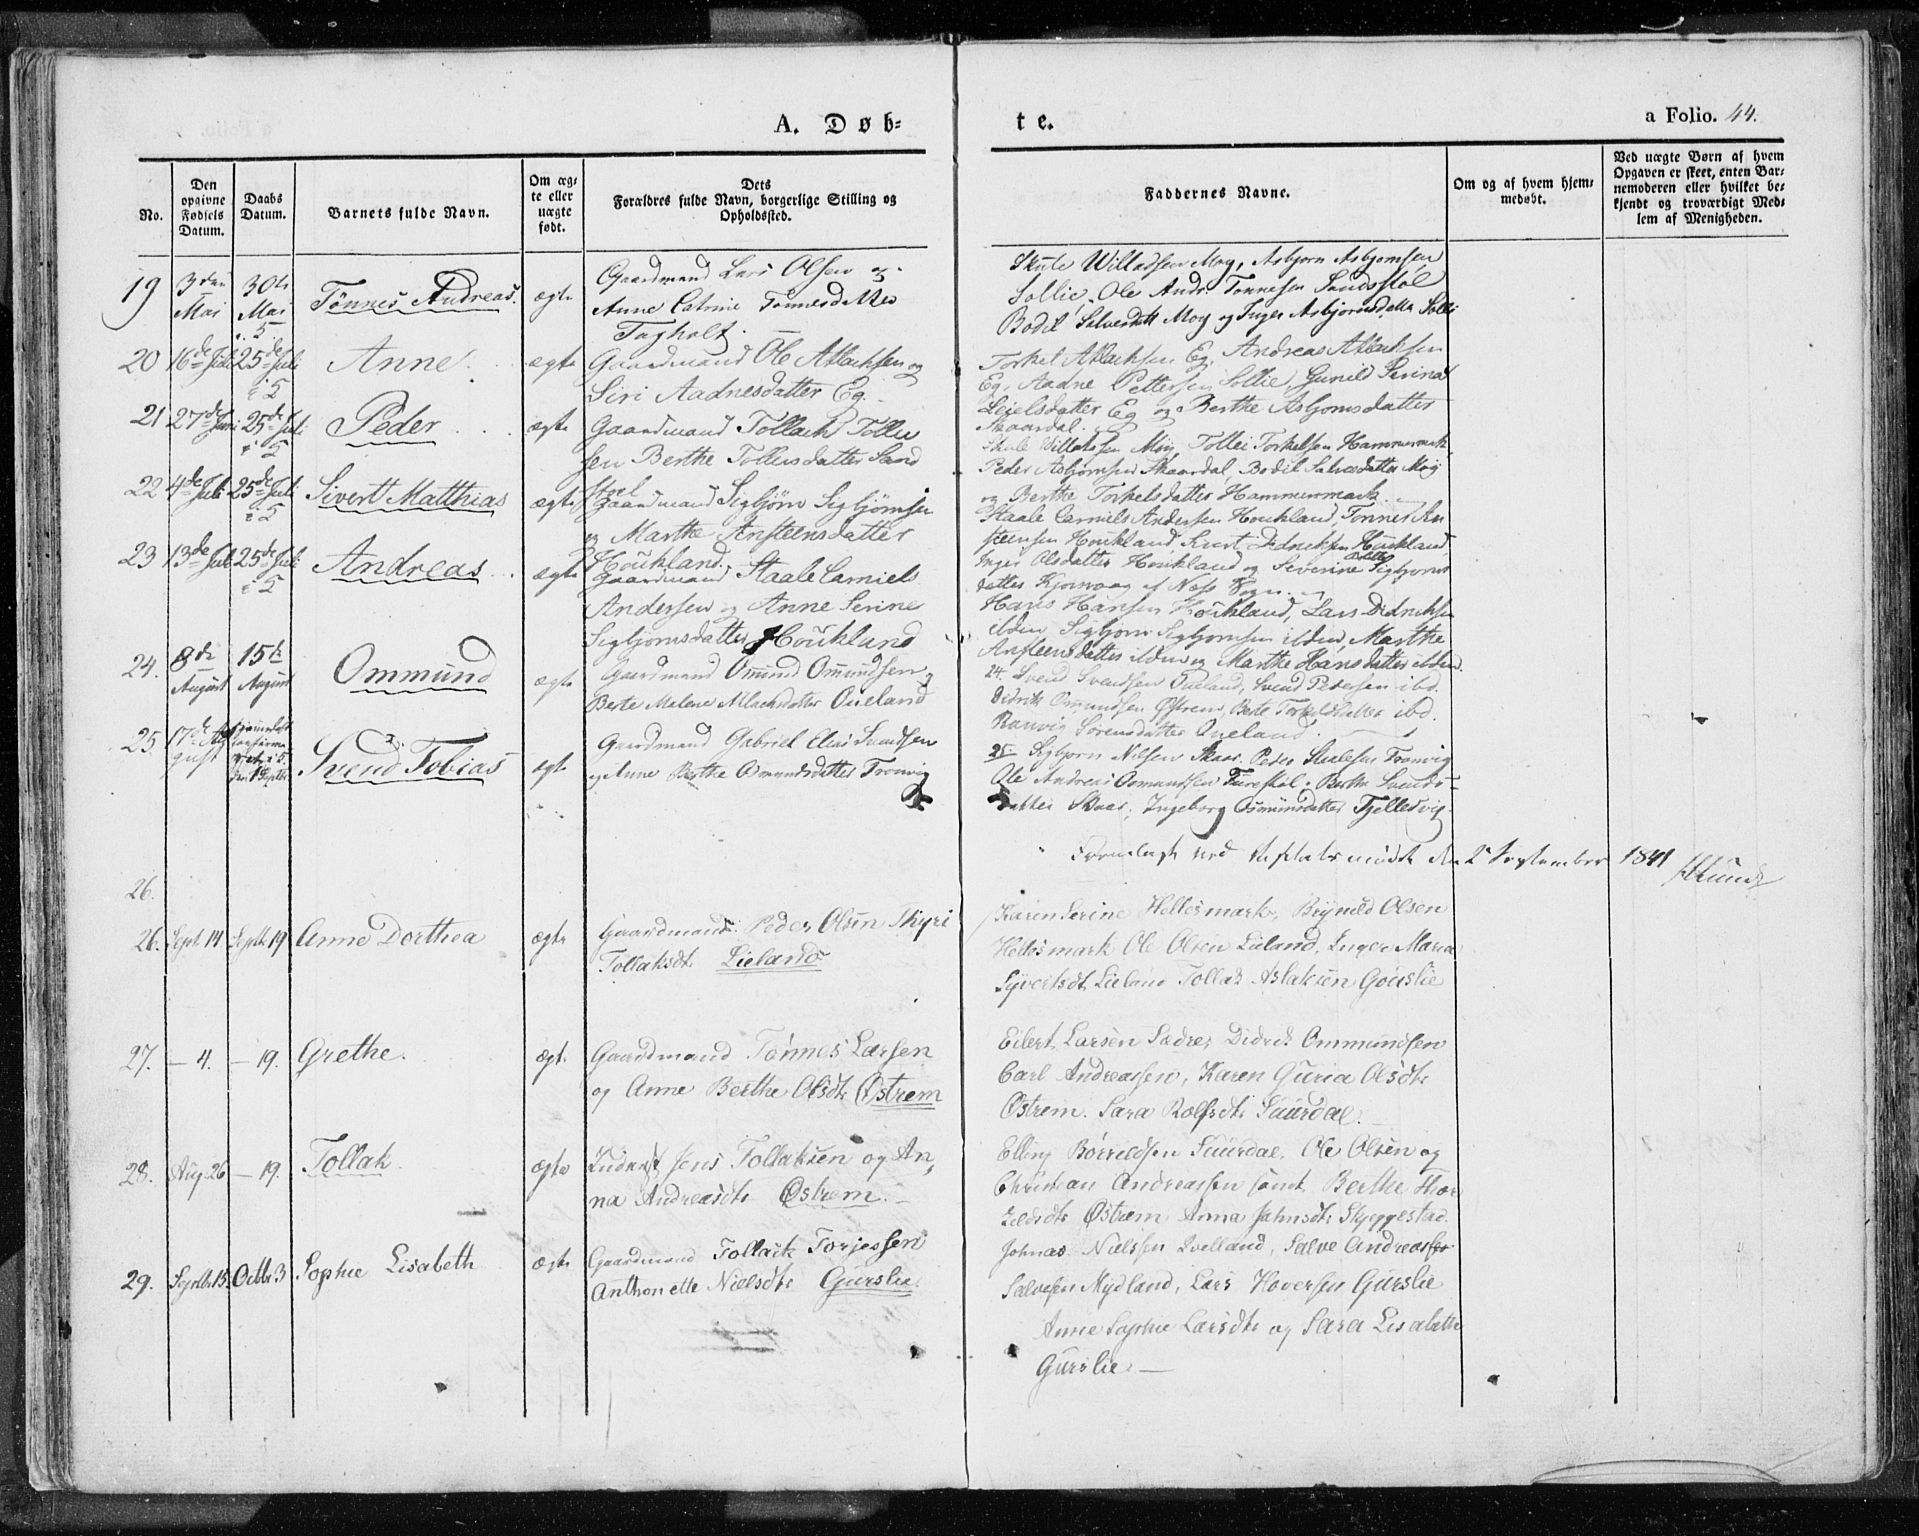 A. Døb-
te.
a Folio. 44.
No.
Den opgivne Fødsels Datum.
Daabs Datum.
Barnets fulde Navn.
Om ægte eller uægte født.
Dets Forældres fulde Navn, borgerlige Stilling og Opholdssted.
Faddernes Navne.
Om og af hvem hjemmedøbt.
Ved uægte Børn af hvem Opgaven er skeet, enten Barnemoderen eller hvilket bekjendt og troværdigt Medlem af Menigheden.
19 3die Mai 30te Mai Tönnes Andreas. ægte
Gaardmand Lars Olsen og
Anne Catrine Tönnesdatter
Tagholt.
Skule Willadsen Moy, Asbjorn Asbjornsen
Sollie, Ole Andr. Tonnesen Sandstöl
Bodil Salvesdatt Moy og Inger Asbjornsdatter Solli
20 16de Juli 25de Juli Anne ægte
Gaardmand Ole Atlachsen og
Siri Aadnesdatter Eg.
Torkel Atlachsen Eg, Andreas Atlachsen
Eg, Aadne Pettersen Sollie, Gunild Serina
Leielsdatter Eg og Berthe Asbjornsdatter
Skaardal.
21 27de Juni 25de Juli Peder ægte
Gaardmand Tollach Tollu
sen Berthe Tollensdatter Sand
stoel
Skule Willatssen Moy, Tollei Torkelsen Hammermark
Peder Asbjornsen Skaardal, Bodil Salvesdatter Moy
og Berthe Torkelsdatter Hammermark.
22 4de Juli 25de Juli Sivertt Matthias ægte
Gaardmand Sigbjörn Sigbjörnsen
og Marthe Ansteensdatter
Houkland.
Staale Carniels Andersen Houkland, Tonnes An
steensen Houkland, Didriksen Houkland
Inger Olsdatter Houkland og Severine Sigbjorns
datter Kjorvaag af Ness Sogn.
23 13de Juli 25de Juli Andreas ægte
Gaardmand Staale Carniels
Andersen og Anne Serine
Sigbjornsdatter Houkland
Hans Hansen Houkland, Lars Didriksen
ibden Sigbjorn Sigbjornsen ibden, Marthe
Ansteensdatter ibden og Marthe Hansdatter ibden.
24. 8de August 15de August Ommund ægte
Gaardmand Omund Omundsen
Berte Malene Atlachsdatter Oueland
24. Svend Svendsen Oueland, Svend Pedersen ibd.
Didrik Omundsen Østrem, Berte Torkelsdatter ibd.
Ranvig Sorensdatter Oueland.
25 17de August Svend Tobias ægte
Gaardmand Gabriel Elias Svendsen
og Anne Berthe Omundsdatter Tronvig
25. Sigbjorn Nilsen Skaar. Peder Skulesen Tronvig
Ole Andreas Osmundsen Furestöl. Berthe Svends-
datter Skaar, Ingeborg Osmunsdatter Fjelledvig
Fremlagt ved den 2 September 1841
26.
26. Sept 14. Septbr 19 Anne Dorthea ægte
Gaardmand: Peder Olsen Thyri
Tollaksdt. Lieland.
Karen Serine Hellesmark, Brynild Olsen
Hellesmark Ole Olsen Lieland, Inger Maria
Syvertsdt. Lieland Tollak Aslaksen Gouslie
27. - 4. - 19. Grethe. ægt.
Gaardmand Tönnes Larsen
og Anne Berthe Olsdt. Østrem
Eilert Larsen Sædres Didrik Ommundsen
Carl Andreassen, Karen Guria Olsdt.
Østrem. Sara Rolfsdt. Suurdal.
28. Aug. 26 - 19. Tollak. ægte
Inderst Jens Tollaksen og An-
na Andreasdt. Østrem.
Elling Börrildsen Suurdal. Ole Olsen og
Christian Andreassen samt Berthe Thor
keldsdt. Østrem Anna Jahnsdt. Skjeggestad.
29. Septbr. 15. Octbr 3 Sophie Lisabeth ægte
Gaardmand Tollack Torjessen
Anthonette Nielsdt. Gurslie.
Johnas Nielssen Qvelland, Salve Andreassen
Salvesen Mydland, Lars Hoversen Gurslie
Anne Sophie Larsdt. og Sara Lisabeth
Gurslie. —